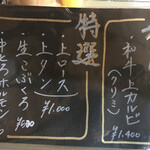 ・和牛上カルビ
(クリミ)
¥1.400
特選
・上ロース
・上タン
¥1.000
・生こぶくろ
¥500
・中とろホルモン